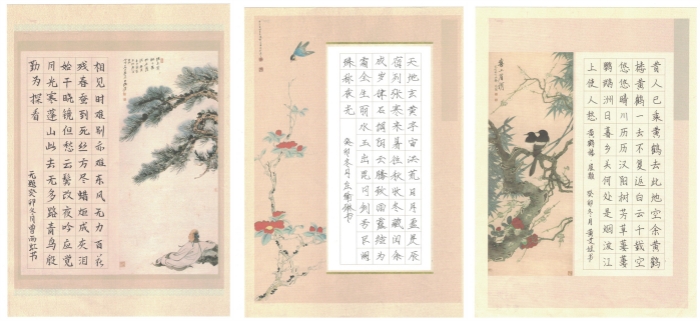 相见时难别亦难东风无力百花
残春蚕到死丝方尽蜡炬成灰泪
始干晓镜但愁云鬓改夜吟应觉
月光寒蓬山此去无多路青鸟殷
勤为探看
无题癸卯冬月曹雨虹书
天地玄黄宇宙洪荒日月盈昃辰
宿列张寒来暑往秋收冬藏闰余
成岁律吕调阳云腾致雨露结为
霜金生丽水玉出昆冈剑号巨阙
珠称夜光
癸卯冬月 书
昔人已乘黄鹤去此地空余黄鹤
楼黄鹤一去不复返白云千载空
悠悠晴川历历汉阳树芳草萋萋
鹦鹉洲日暮乡关何处是烟波江
上使人愁 黄鹤楼 崔颢 癸卯冬月黄文 书